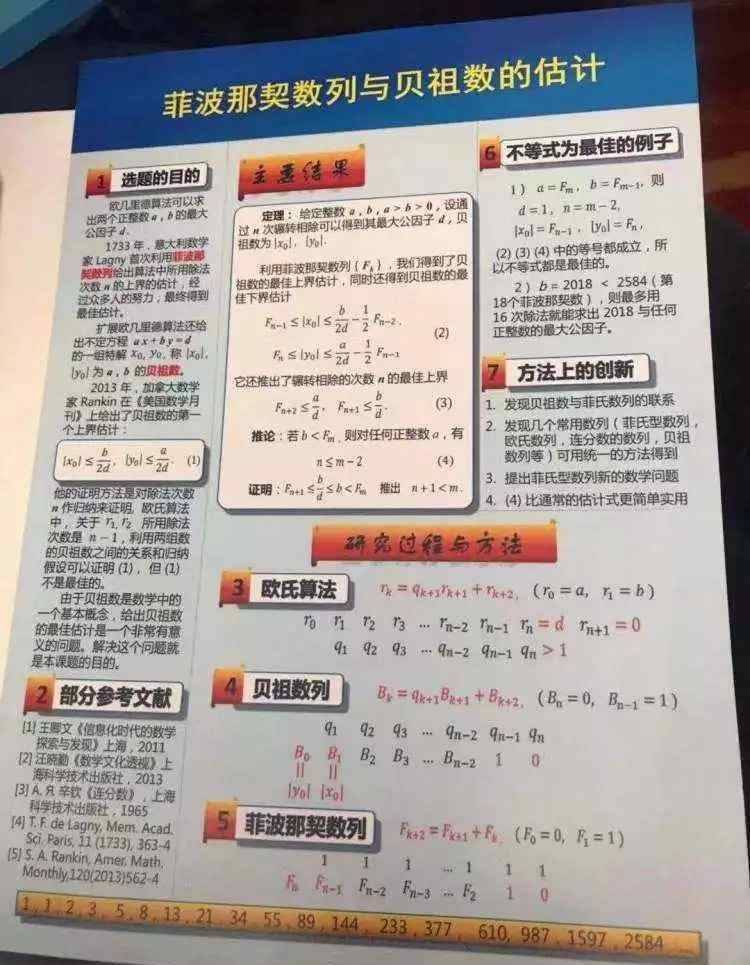 菲波那契数列与贝祖数的估计
1 选题的目的
欧几里德算法可以求
出两个正整数 a , b 的最大
公因子 d .
1733 年，意大利数学
家 Lagny 首次利用菲波那
契数列给出算法中所用除法
次数 n 的上界的估计，经
过众多人的努力，最终得到
最佳估计。
扩展欧几里德算法还给
出不定方程 ax + by = d
的一组特解 x₀, y₀, 称 |x₀|,
|y₀| 为 a , b 的贝祖数。
2013 年，加拿大数学
家 Rankin 在《美国数学月
刊》上给出了贝祖数的第一
个上界估计：
|x₀| ≤ b/2d , |y₀| ≤ a/2d . (1)
他的证明方法是对除法次数
n 作归纳来证明, 欧氏算法
中，关于 r₁, r₂ 所用除法
次数是 n − 1 , 利用两组数
的贝祖数之间的关系和归纳
假设可以证明 (1) ，但 (1)
不是最佳的。
由于贝祖数是数学中的
一个基本概念，给出贝祖数
的最佳估计是一个非常有意
义的问题。解决这个问题就
是本课题的目的。
2 部分参考文献
[1] 王卿文《信息化时代的数学
探索与发现》上海，2011
[2] 汪晓勤《数学文化透视》上
海科学技术出版社，2013
[3] А. Я. 辛钦《连分数》，上海
科学技术出版社，1965
[4] T. F. de Lagny, Mem. Acad.
Sci. Paris, 11 (1733), 363-4
[5] S. A. Rankin, Amer. Math.
Monthly,120(2013)562-4
主要结果
定理：给定整数 a , b , a > b > 0 , 设通
过 n 次辗转相除可以得到其最大公因子 d , 贝
祖数为 |x₀|, |y₀|.
利用菲波那契数列 {Fₖ} , 我们得到了贝
祖数的最佳上界估计，同时还得到贝祖数的最
佳下界估计
Fₙ₋₁ ≤ |x₀| ≤ b/2d − 1/2 Fₙ₋₂ ,
(2)
Fₙ ≤ |y₀| ≤ a/2d − 1/2 Fₙ₋₁
它还推出了辗转相除的次数 n 的最佳上界
Fₙ₊₂ ≤ a/d , Fₙ₊₁ ≤ b/d . (3)
推论：若 b < Fₘ , 则对任何正整数 a , 有
n ≤ m − 2 (4)
证明：Fₙ₊₁ ≤ b/d ≤ b < Fₘ 推出 n + 1 < m .
6 不等式为最佳的例子
1 ) a = Fₘ , b = Fₘ₋₁, 则
d = 1 , n = m − 2 ,
|x₀| = Fₙ₋₁ , |y₀| = Fₙ ,
(2) (3) (4) 中的等号都成立，所
以不等式都是最佳的。
2 ) b = 2018 < 2584 ( 第
18个菲波那契数 ) , 则最多用
16 次除法就能求出 2018 与任何
正整数的最大公因子。
7 方法上的创新
1. 发现贝祖数与菲氏数列的联系
2. 发现几个常用数列（菲氏型数列，
欧氏数列，连分数的数列，贝祖
数列等）可用统一的方法得到
3. 提出菲氏型数列新的数学问题
4. (4) 比通常的估计式更简单实用
研究过程与方法
3 欧氏算法 rₖ = qₖ₊₁rₖ₊₁ + rₖ₊₂ , ( r₀ = a, r₁ = b )
r₀ r₁ r₂ r₃ … rₙ₋₂ rₙ₋₁ rₙ = d rₙ₊₁ = 0
q₁ q₂ q₃ … qₙ₋₂ qₙ₋₁ qₙ > 1
4 贝祖数列 Bₖ = qₖ₊₁Bₖ₊₁ + Bₖ₊₂ , ( Bₙ = 0, Bₙ₋₁ = 1 )
q₁ q₂ q₃ … qₙ₋₂ qₙ₋₁ qₙ
B₀ B₁ B₂ B₃ … Bₙ₋₂ 1 0
|| ||
|y₀| |x₀|
5 菲波那契数列 Fₖ₊₂ = Fₖ₊₁ + Fₖ , ( F₀ = 0, F₁ = 1 )
1 1 1 … 1 1 1
Fₙ Fₙ₋₁ Fₙ₋₂ Fₙ₋₃ … F₂ 1 0
1 , 1 , 2 , 3 , 5 , 8 , 13 , 21 34 55 , 89 , 144 , 233 , 377 , 610, 987 , 1597 , 2584 ......